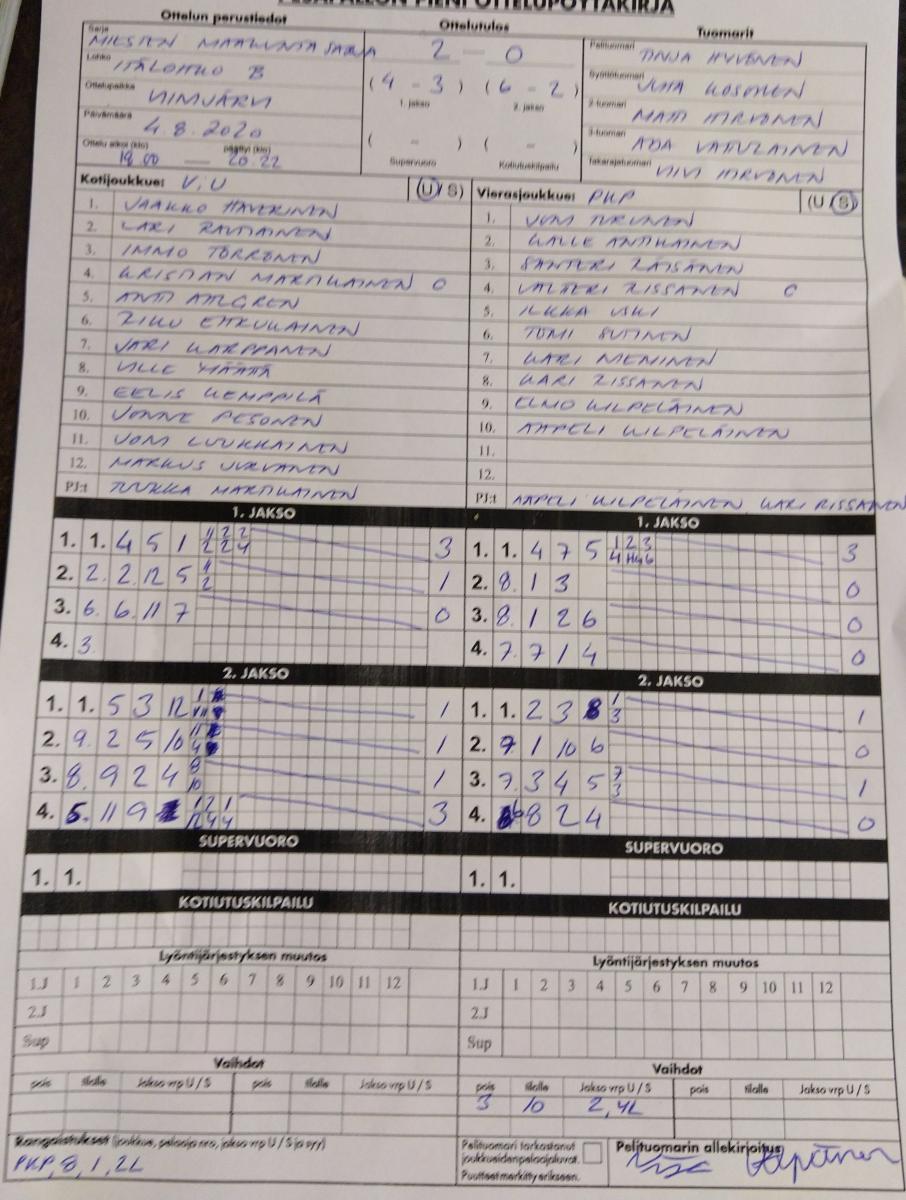 PESÄPALLON PIENI OTTELUPÖYTÄKIRJA
Ottelun perustiedot Ottelutulos Tuomarit
Sarja MIESTEN MAAKUNTASARJA 2 - 0 Pelituomari TINJA HYVÖNEN
Lohko ITÄLOHKO B (4 - 3) (6 - 2) Syöttötuomari JUHA KOSONEN
1. jakso 2. jakso
Ottelupaikka VIINIJÄRVI 2-tuomari MATTI HIRVONEN
Päivämäärä 4.8.2020 ( - ) ( - ) 3-tuomari ADA VATULAINEN
Ottelu alkoi (klo) 19.00 — päättyi (klo) 20.22 Supervuoro Kotiutuskilpailu Takarajatuomari VIVI HIRVONEN
Kotijoukkue: ViU (U / S) Vierasjoukkue: PKP (U / S)
1. JAAKKO HAVERINEN 1. JONI TURUNEN
2. LARI RAUTIAINEN 2. KALLE ANTIKAINEN
3. IMMO TORRONEN 3. SANTERI RÄISÄNEN
4. KRISTIAN MARTIKAINEN C 4. VALTTERI RISSANEN C
5. ANTTI AHLGREN 5. ILKKA USKI
6. RIKU EHRUKAINEN 6. TOMI SUTINEN
7. JARI KARPPANEN 7. KARI NIEMINEN
8. VILLE MÄÄTTÄ 8. KARI RISSANEN
9. EELIS KEMPPILÄ 9. ELMO KILPELÄINEN
10. JONNE PESONEN 10. AAPELI KILPELÄINEN
11. JONI LUUKKAINEN 11.
12. MARKUS JURVANEN 12.
PJ:t TUUKKA MARTIKAINEN PJ:t AAPELI KILPELÄINEN KARI RISSANEN
1. JAKSO 1. JAKSO
1. 1. 4 5 1 3 1. 1. 4 7 5 3
2. 2. 2. 12 5 1 2. 8. 1 3 0
3. 6. 6. 11 7 0 3. 8. 1 2 6 0
4. 3. 4. 7. 7 1 4 0
2. JAKSO 2. JAKSO
1. 1. 5 3 12 1 1. 1. 2 3 8 1 3 1
2. 9. 2 5 10 1 2. 7 1 10 6 0
3. 8. 9 2 4 8 10 1 3. 7. 3 4 5 7 3 1
4. 5. 11 9 1 2 1 12 4 4 3 4. 8 2 4 0
SUPERVUORO SUPERVUORO
1. 1. 1. 1.
KOTIUTUSKILPAILU KOTIUTUSKILPAILU
Lyöntijärjestyksen muutos Lyöntijärjestyksen muutos
1.J 1 2 3 4 5 6 7 8 9 10 11 12 1.J 1 2 3 4 5 6 7 8 9 10 11 12
2.J 2.J
Sup Sup
Vaihdot Vaihdot
pois tilalle Jakso vrp U / S pois tilalle Jakso vrp U / S pois tilalle Jakso vrp U / S pois tilalle Jakso vrp U / S
3 10 2,4L
Rangaistukset (joukkue, pelaaja nro, jakso vrp U / S ja syy) Pelituomari tarkastanut Pelituomarin allekirjoitus
joukkueiden pelaajaluvat.
PKP, 8, 1, 2L Puutteet merkitty erikseen.